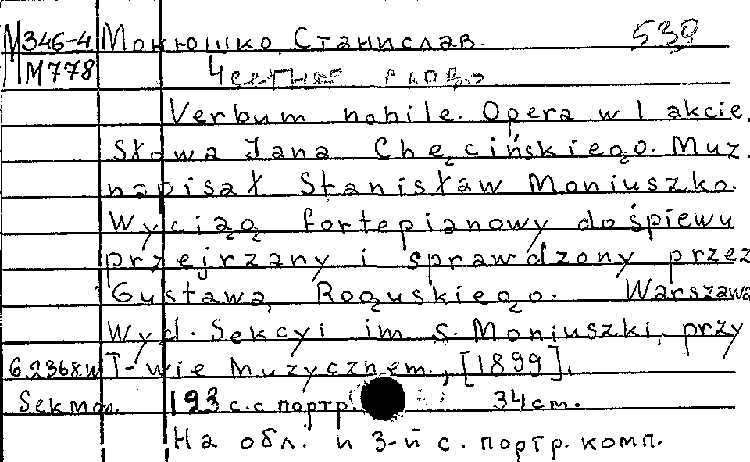 М346-4 Монюшко, Станислав. 539
М778 Честное слово
Verbum nobile. Opera w 1 akcie.
Słowa Jana Chęcińskiego. Muz.
napisał Stanisław Moniuszko.
Wyciąg fortepianowy do śpiewu
przejrzany i sprawdzony przez
Gustawa Roguskiego. Warszawa
Wyd. Sekcyi im. S. Moniuszki, przy
T-wie Muzycznem, [1899].
193 с. с портр. 34 cm.
На обл. и 3-й с. портр. комп.